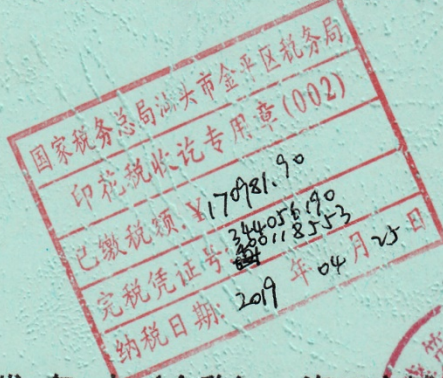 国家税务总局汕头市金平区税务局
印花税收讫专用章(002)
已缴税额:¥170981.90
完税凭证号:344056190
300118553
纳税日期:2019年04月25日